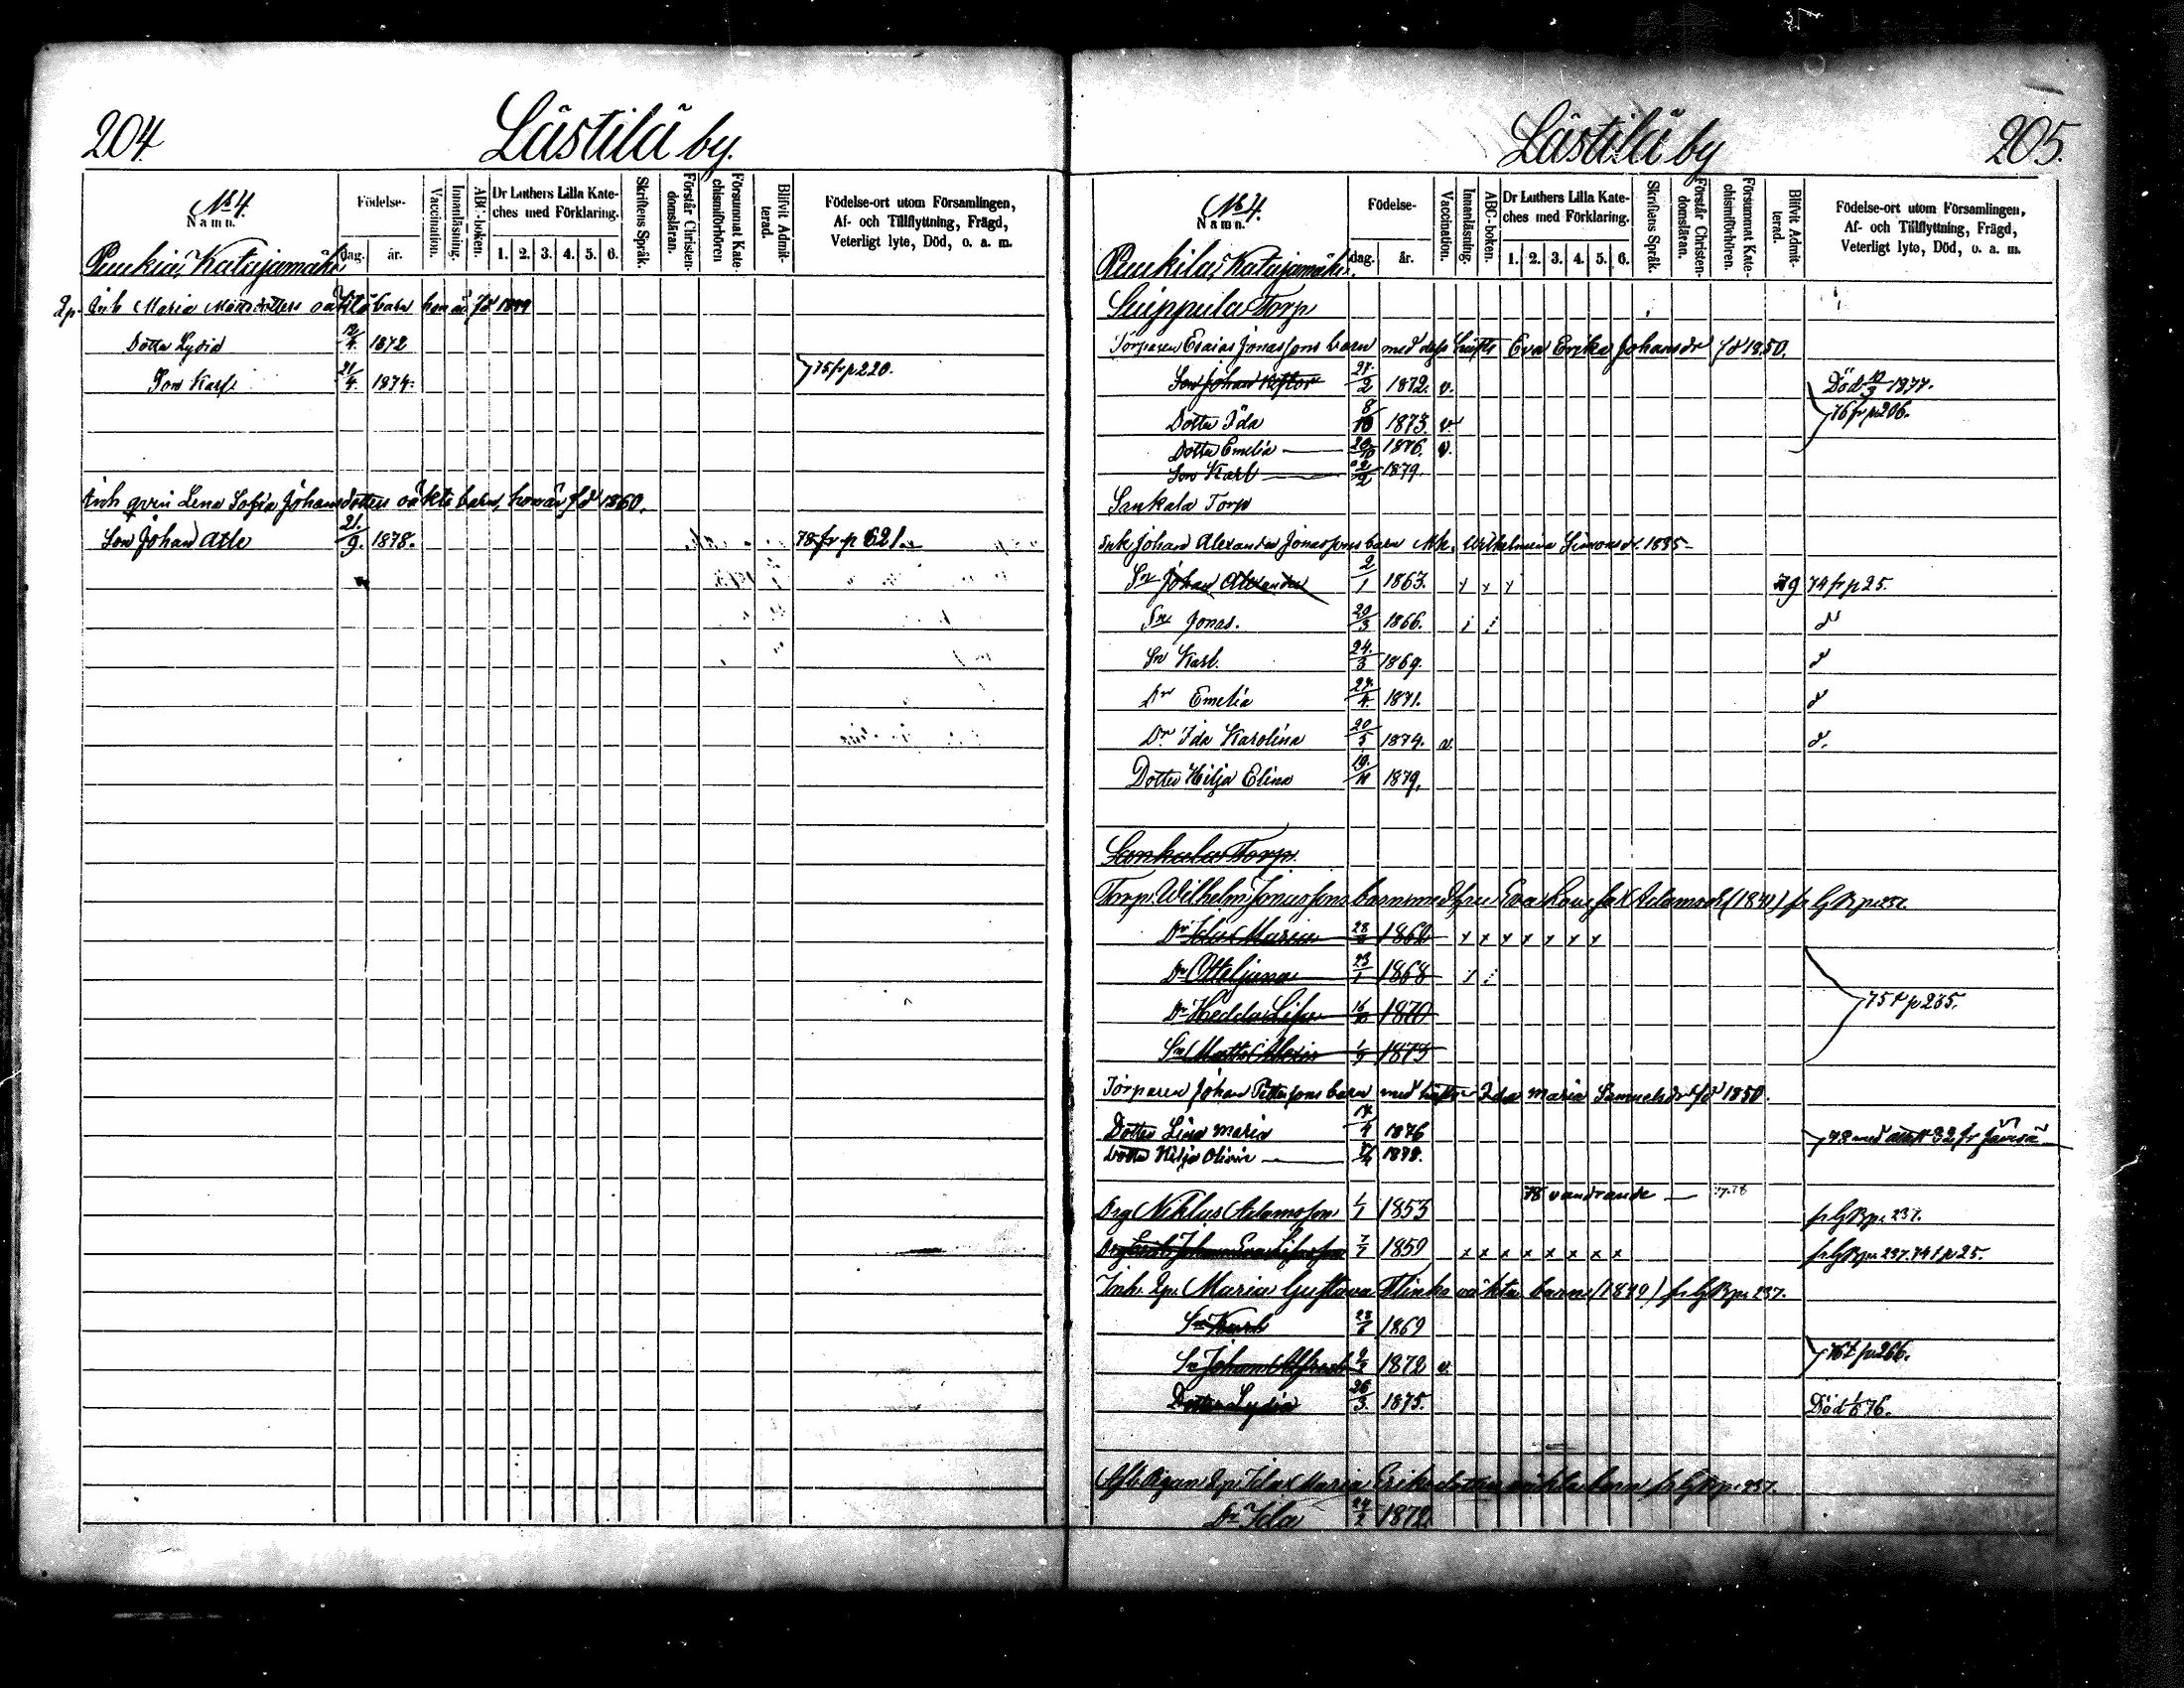 204.
Lästilä by.
No 4.
Namn.
Födelse-
dag.
år.
Vaccination.
Innanläsning.
ABC-boken.
Dr Luthers Lilla Kate-
ches med Förklaring.
1. 2. 3. 4. 5. 6.
Skriftens Språk.
Förstår Christen-
domsläran.
Försummat Kate-
chismiförhören
Blifvit Admit-
terad.
Födelse-ort utom Församlingen,
Af- och Tillflyttning, Frägd,
Veterligt lyte, Död, o. a. m.
Katajamäki
Qp. Inh Maria Mattsdotters oäkta barn hon är fd
Dotter Lydia 12/4. 1872
Son Karl 21/4. 1874. 75 fr p 220.
Inh qvin Lena Sofia Johansdotters oäkta barn, hon är fd 1860.
Son Johan 21./9. 1878. 78 fr p 621.
Lästilä by
205.
No 4.
Namn.
Födelse-
dag.
år.
Vaccination.
Innanläsning.
ABC-boken.
Dr Luthers Lilla Kate-
ches med Förklaring.
1. 2. 3. 4. 5. 6.
Skriftens Språk.
Förstår Christen-
domsläran.
Försummat Kate-
chismiförhören.
Blifvit Admit-
terad.
Födelse-ort utom Församlingen,
Af- och Tillflyttning, Frägd,
Veterligt lyte, Död, o. a. m.
Katajamäki.
Torp
Torparen Esaias Jonassons barn med dess hustr Eva Erika Johansdr fd 1850.
Son Johan Viktor 27./2 1872. v. Död 12/3 1877.
Dotter Ida 8/10 1873. v. 76 fr p 206.
Dotter Emelia 20/10 1876. v.
Son Karl 2/2 1879.
Sankala Torp
Inh Johan Alexander Jonassons barn Mh. Wilhelmina Simonsdr. 1835
Sn Johan Alexander 2/1 1863. x x x 79 74 fr p 25.
Sn Jonas. 20/3 1866. d
Sn Karl. 24./3 1869. d
Dr Emelia 27./4. 1871. d
Dr Ida Karolina 20/5 1874. v. d.
Dotter Hilja Elina 19./11 1879.
Sankala Torp.
Torp. Wilhelm Jonassons barn med hru Eva Adamsdr
Dr Ida Maria 1862 x x x x x x x
Dr Ottiljana 23/1 1868
Dr Hedda Lisa 16/10 1870 75 t p 235.
Sn Matts Alexis 1873
Torparen Johan Pettersons barn med hustr Ida Maria Samuelsdr fd 1850.
Dotter Lina Maria 17/4 1876 78 med attest 32 fr Jämsä
Dotter Hilja Olivia 1878.
78 vandrande 77.78
Drg Niklas Adamsson 1/1 1853 fr GB p. 237.
7/7 1859 x x x x x x x x fr GB p. 237. 74 t p 25.
Inh. Qp. Maria Gustava Flinks oäkta barn (1849) fr GB p. 237.
Sn Karl 23/6 1869
Sn Johan Alfred 2/3 1872 v. 76 t p 266.
Dotter Lydia 26/3. 1875. Död 1/6 76.
Afl. Pigan Qp. Ida Maria Eriksdotters oäkta barn fr GB p. 237.
Dr Ida 24/2 1872.